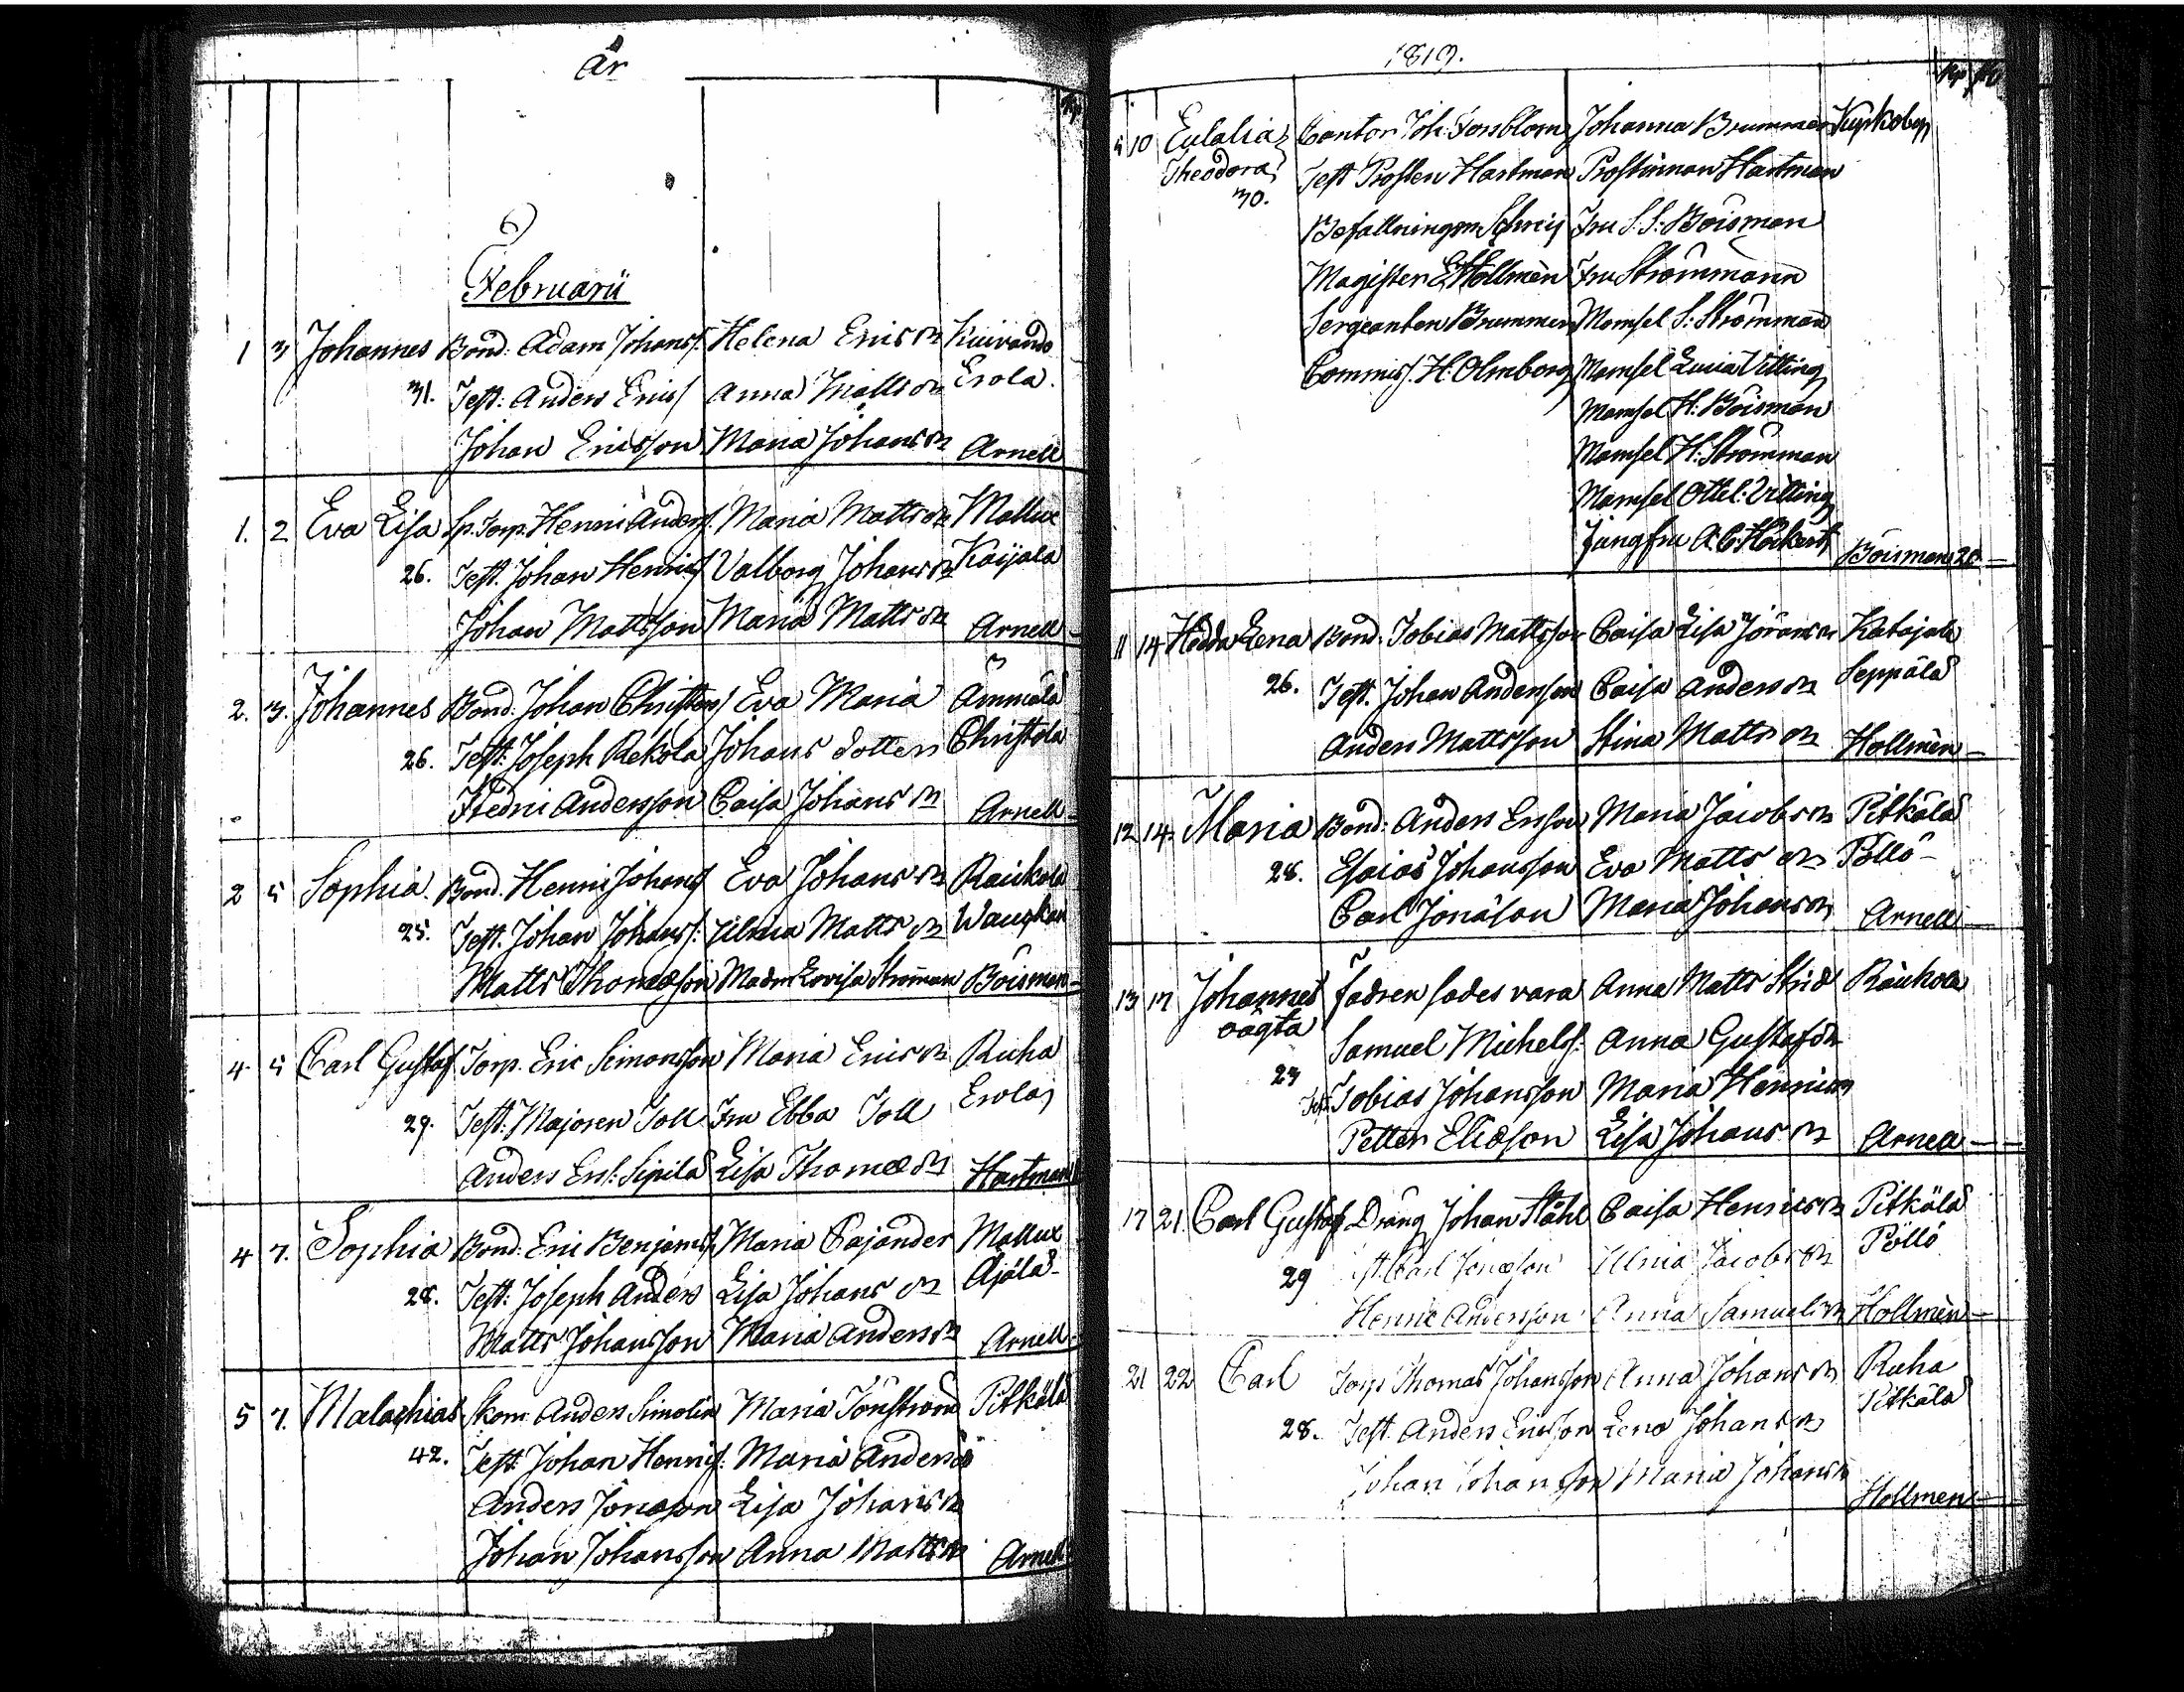 År
Februarii
1 3 Johannes Bond: Adam Johanss: Helena Erics dr Kuivando
31. Test: Anders Ericss Anna Matts dr Erola.
Johan Ericsson Maria Johans dr Arnell
1. 2 Eva Lisa Sp. Torp. Henric Anderss. Maria Matts dr Mallux
26. Test. Johan Henricss Valborg Johans dr Kaijala
Johan Mattsson Maria Matts dr Arnell
2. 3. Johannes Bond. Johan Christerss Eva Maria Ämmälä
26. Test: Joseph Rekola Johans dotter Christola
Hedric Andersson Caisa Johans dr Arnell
2 5 Sophia. Bond. Henric Johanss Eva Johans dr Raukola
25. Test. Johan Johanss: Ulrica Matts dr
Matts Thomæson Madm Lovisa Ströman Böisman
4 5 Carl Gustaf Torp. Eric Simonsson Maria Erics dr Ruha
29. Test: Majoren Toll Fru Ebba Toll Erola
Anders Ers: Sipilä Lisa Thomæ dr Hartman
4 7. Sophia Bond. Eric Benjamss. Maria Cajander Mallux
28. Test: Joseph Anders Lisa Johans dr Äjälä
Matts Johansson Maria Anders dr Arnell
5 7. Malachias Skom. Anders Simolin Maria Tönström Pitkälä
42. Test: Johan Henricss: Maria Anders dr
Anders Jonæson Lisa Johans dr
Johan Johansson Anna Matts dr Arnell
1819.
5 10 Eulalia Cantor Joh: Forsblom Johanna Brummer Kyrkoby
Theodora Test Prosten Hartman Prostinnan Hartman
30.
Befallningsm Schreij Fru S. S: Böisman
Magister E Hollmèn Fru Strömmann
Sergeanten Brummer Mamsel S: Strömman
Commiss. H. Olmborg Mamsel Lucia Vitting
Mamsel H: Böisman
Mamsel H: Strömman
Mamsel Ottil: Vitting
Jungfru A. C: Höckert Böisman 20
11 14 Hedda Lena Bond: Tobias Mattsson Caisa Lisa Jörans dr Katajala
26. Test. Johan Andersson Caisa Anders dr Seppälä
Anders Mattsson Stina Matts dr Hollmèn
12 14. Maria Bond: Anders Ersson Maria Jacobs dr Pitkälä
28. Esaias Johansson Eva Matts dr Pöllö
Carl Jonäson Maria Johans dr Arnell
13 17 Johannes fadren sades vara Anna Matts Strid Räukola
oägta Samuel Michelss: Anna Gustafs dr
23 Test. Tobias Johansson Maria Henrics dr
Petter Eliæson Lisa Johans dr Arnell
17 21. Carl Gustaf Dräng Johan Ståhl Caisa Henrics dr Pitkälä
29 Test. Carl Jonæson Ulrica Jacobs dr Pöllö
Henric Andersson Anna Samuels dr Hollmèn
21 22 Carl Torp Thomas Johansson Anna Johans dr Ruha
28. Test. Anders Ericsson Lena Johans dr Pitkälä
Johan Johansson Maria Johans dr
Hollmen